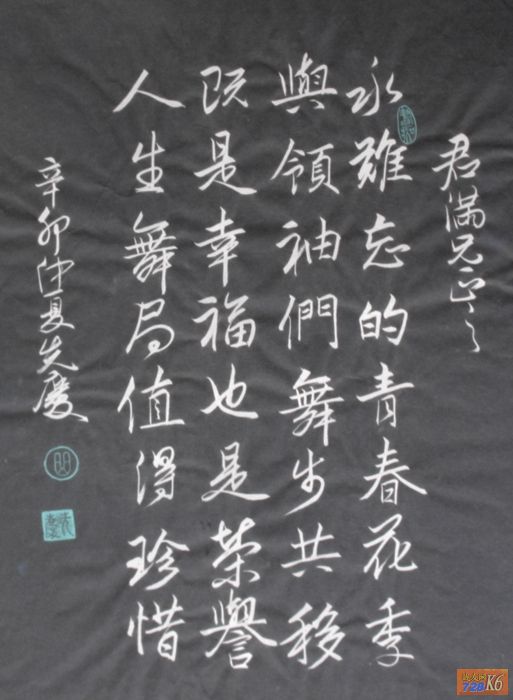 君滿兄正之
永難忘的青春花季
與領袖們舞步共移
既是幸福也是榮譽
人生舞局值得珍惜
辛卯仲夏先慶
720K6